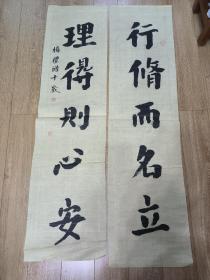 行脩而名立
理得則心安